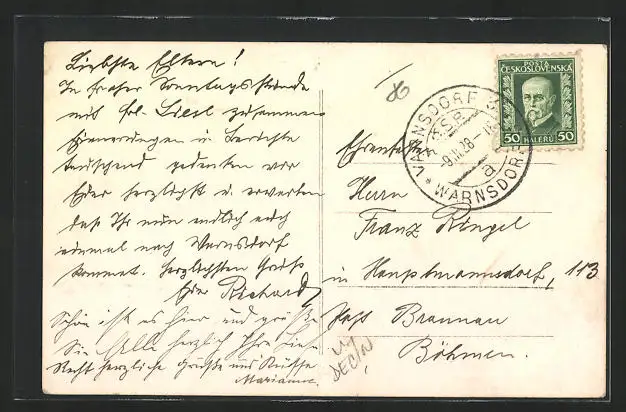 Liebste Eltern!
In froher Sonntagsstunde
mit Frl. Liesl zusammen
Erinnerungen u. Berichte
tauschend gedenken wir
Euer herzlichst u. erwarten
daß Ihr nun endlich auch
einmal nach Warnsdorf
kommt. Herzlichsten Gruß
Euer Richard
Schön ist es hier und grüße
Sie Alle herzlich Ihre Liesl
Recht herzliche Grüße und Küsse
Marianne.
POSTA
ČESKOSLOVENSKÁ
50 HALÉŘŮ 50
VARNSDORF 3
Č.S.R.
a
* WARNSDORF
Herrn
Franz Ringel
in Hauptmannsdorf, 113
Post Braunau
Böhmen.
DECIN